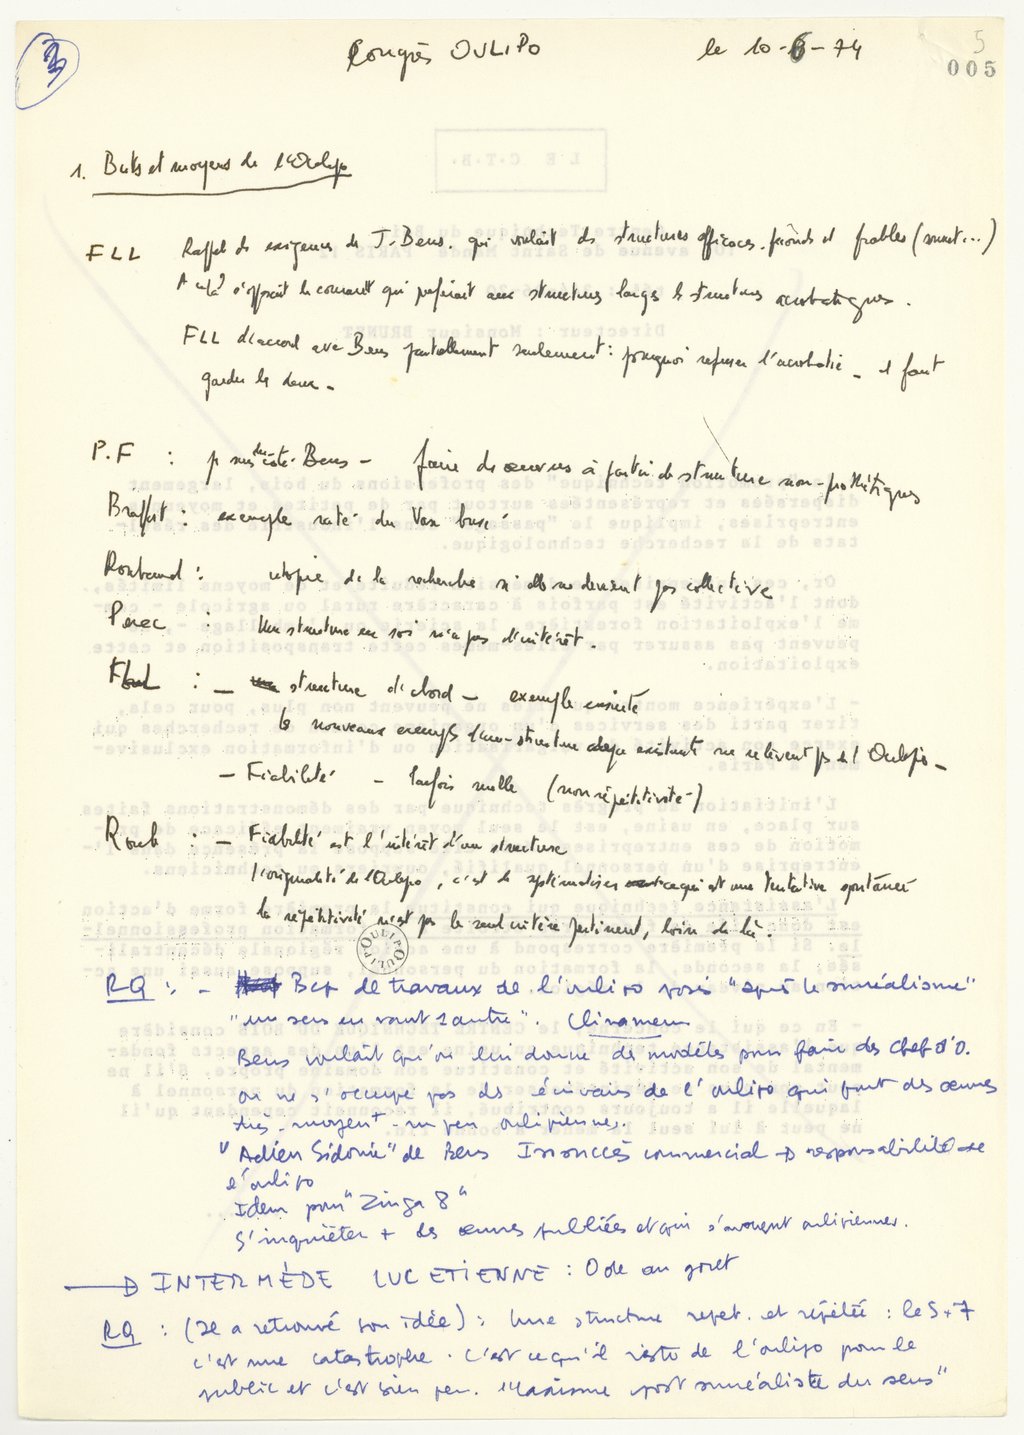 3
Congrès OULIPO
le 10-6-74
5
005
1. Buts et moyens de l'Oulipo
FLL Rappel des exigences de J. Bens. qui voulait des structures efficaces, féconds et fiables (sonnet...)
A cela s'opposait le courant qui préférait aux structures larges les structures acrobatiques.
FLL d'accord avec Bens partiellement seulement : pourquoi refuser l'acrobatie - il faut
garder les deux -
P.F : du côté Bens - faire des œuvres à partir de structure non-poétiques
Braffort : exemple raté du Vase brisé
Roubaud : utopie de la recherche si elle ne devient pas collective
Perec : Une structure en soi n'a pas d'intérêt.
FLL : - structure d'abord - exemple ensuite
les nouveaux exemples d'une structure déjà existante ne relèvent pas de l'Oulipo -
- Fiabilité - parfois nulle (non répétitivité)
Roub : - Fiabilité est l'intérêt d'une structure
l'originalité de l'Oulipo, c'est de systématiser ce qui est une tentative spontanée
la répétitivité n'est pas le seul critère pertinent, loin de là.
OULIPO OULIPO
RQ : - Bcp de travaux de l'oulipo posés "après le surréalisme"
"un sens en vaut 1 autre". Clinamen
Bens voulait qu'on lui donne des modèles pour faire des chef d'O.
on ne s'occupe pas des écrivains de l'oulipo qui font des œuvres
très-moyent-un peu oulipiennes.
"Adieu Sidonie" de Bens Insuccès commercial → responsabilité de
l'oulipo
Idem pour "Zinga 8"
S'inquiéter + des œuvres publiées et qui s'avouent oulipiennes.
→ INTERMÈDE LUC ETIENNE : Ode au goret
RQ : (Il a retrouvé son idée) : Une structure repet. et répétée : le S+7
c'est une catastrophe. C'est ce qu'il reste de l'oulipo pour le
public et c'est bien peu. "Laxisme post surréaliste du sens"